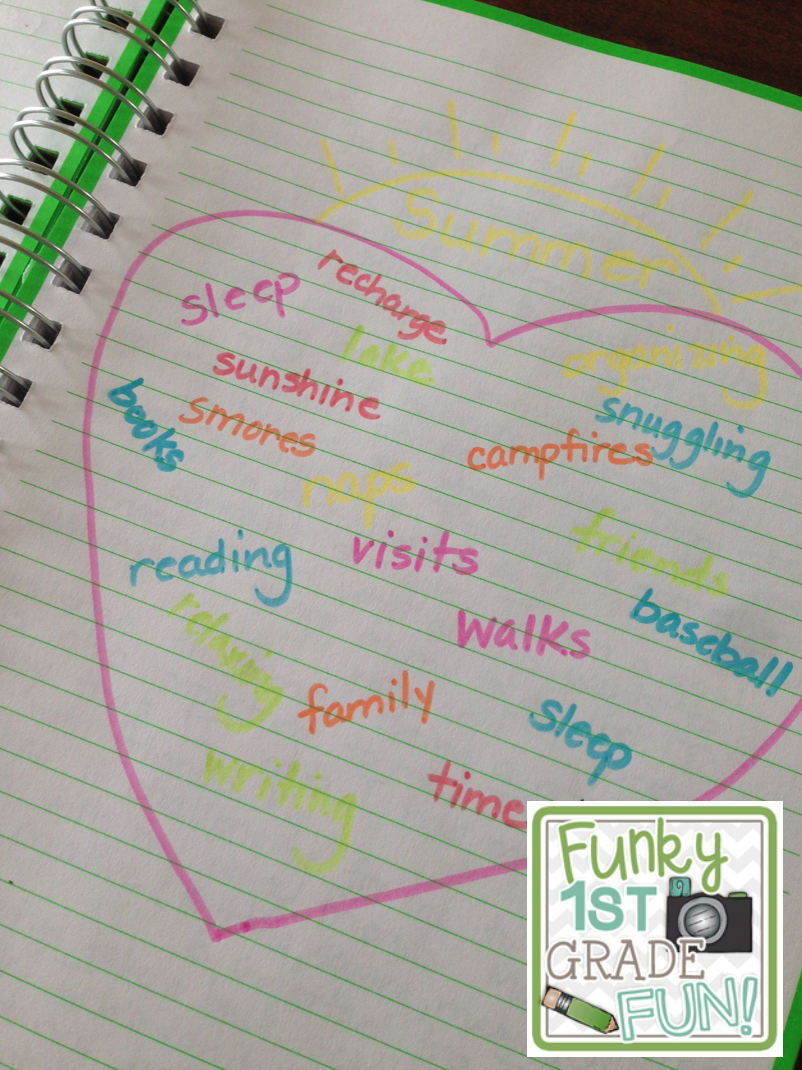 Summer
recharge
sleep
lake
organizing
sunshine
snuggling
books
smores
campfires
naps
friends
visits
reading
baseball
relaxing
walks
family
sleep
writing
time
Funky
1ST
GRADE
FUN!